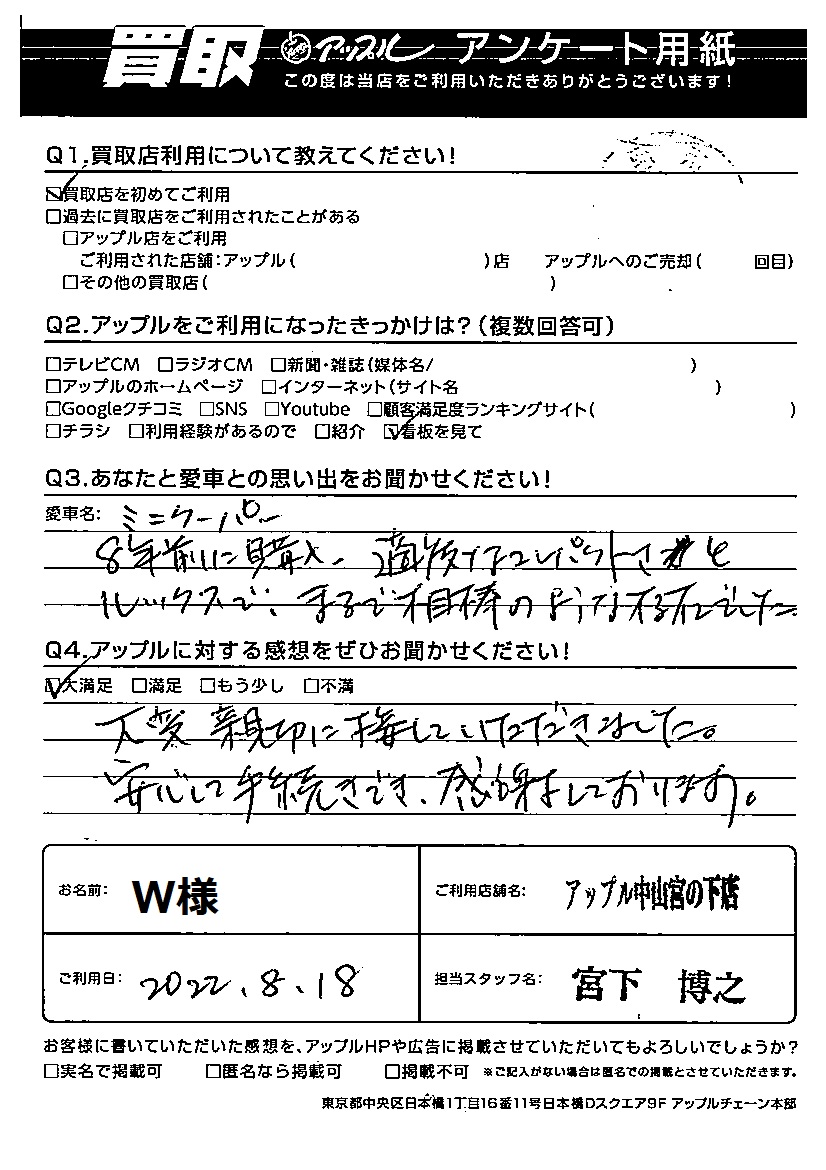 買取 アップル アンケート用紙
この度は当店をご利用いただきありがとうございます!
Q1.買取店利用について教えてください!
☑買取店を初めてご利用
□過去に買取店をご利用されたことがある
□アップル店をご利用
ご利用された店舗:アップル( )店 アップルへのご売却( 回目)
□その他の買取店( )
Q2.アップルをご利用になったきっかけは?(複数回答可)
□テレビCM □ラジオCM □新聞・雑誌(媒体名/ )
□アップルのホームページ □インターネット(サイト名 )
□Googleクチコミ □SNS □Youtube □顧客満足度ランキングサイト( )
□チラシ □利用経験があるので □紹介 ☑看板を見て
Q3.あなたと愛車との思い出をお聞かせください!
愛車名: ミニクーパー
8年前に購入、適度なコンパクトさと
ルックスで、まるで相棒のような存在でした
Q4.アップルに対する感想をぜひお聞かせください!
☑大満足 □満足 □もう少し □不満
大変親切に接していただきました。
安心して手続きでき、感謝しております。
お名前: W様 ご利用店舗名: アップル中山宮の下店
ご利用日: 2022、8、18 担当スタッフ名: 宮下 博之
お客様に書いていただいた感想を、アップルHPや広告に掲載させていただいてもよろしいでしょうか?
□実名で掲載可 □匿名なら掲載可 □掲載不可 ※ご記入がない場合は匿名での掲載とさせていただきます。
東京都中央区日本橋1丁目16番11号日本橋Dスクエア9F アップルチェーン本部